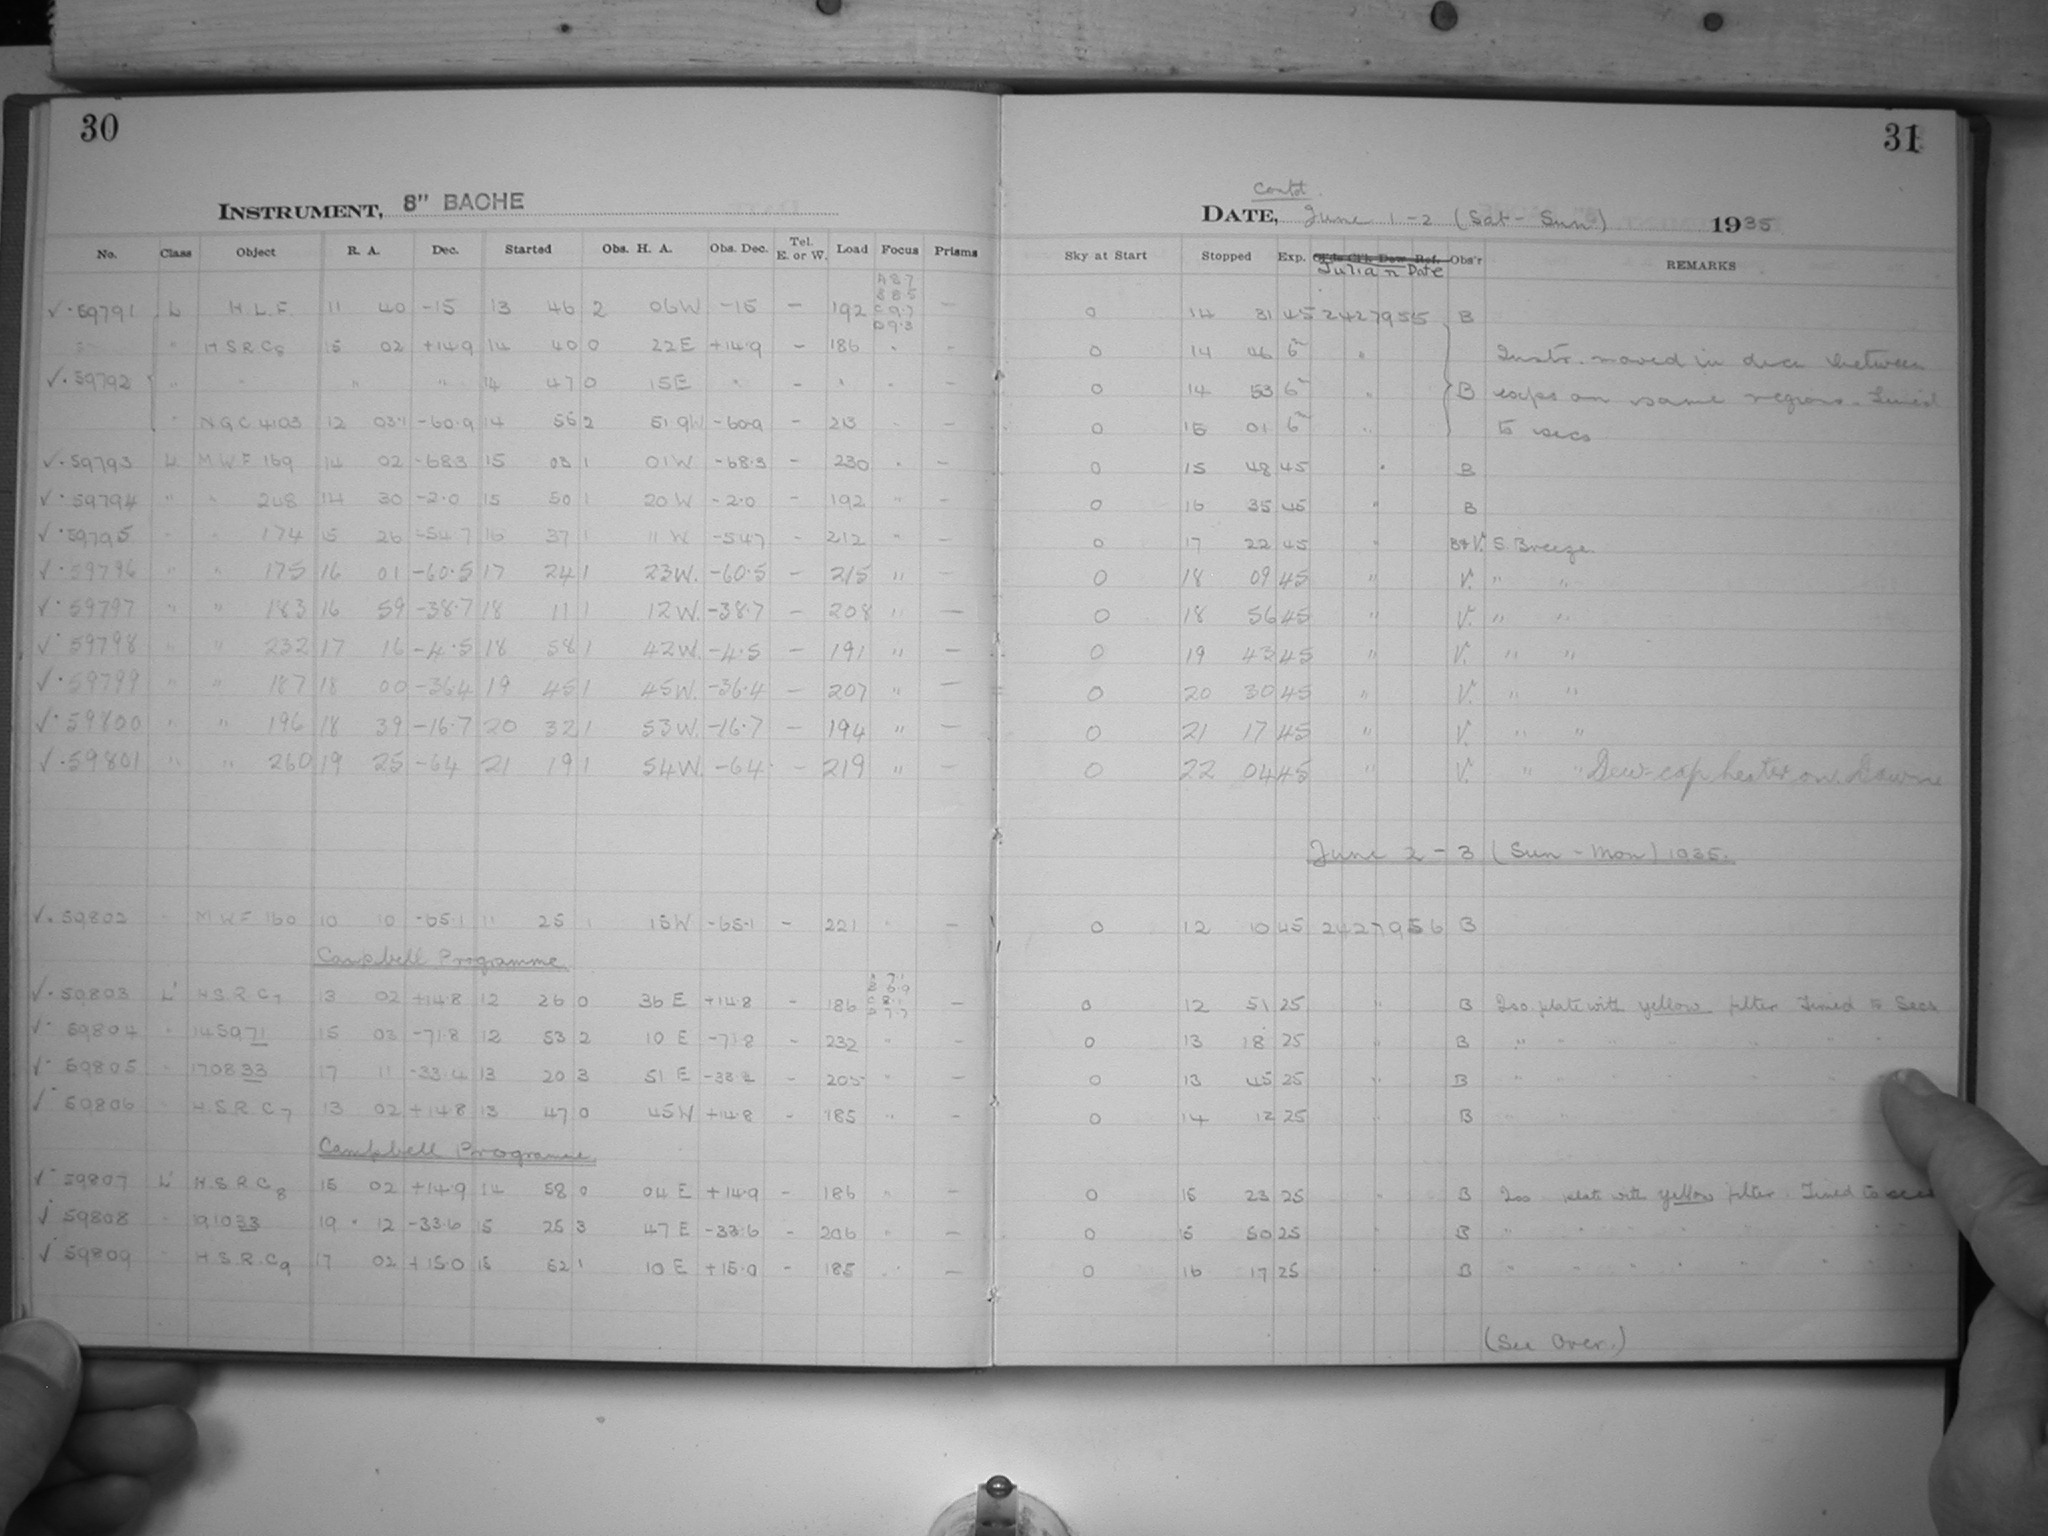 30
INSTRUMENT, 8" BACHE
No. Class Object R. A. Dec. Started Obs. H. A. Obs. Dec. Tel. E. or W. Load Focus Prisms
A 8.7
B 8.5
C 9.7
D 9.3
✓·59791 L H.L.F. 11 40 -15 13 46 2 06W -15 - 192 -
" HSRC8 15 02 +14.9 14 40 0 22E +14.9 - 186 " -
✓·59792 " " " " 14 47 0 15E " - " " -
" NGC 4103 12 03.1 -60.9 14 55 2 51.9W -60.9 - 213 " -
✓·59793 L MWF 169 14 02 -68.3 15 03 1 01W -68.3 - 230 " -
✓·59794 " " 248 14 30 -2.0 15 50 1 20W -2.0 - 192 " -
✓·59795 " " 174 15 26 -54.7 16 37 1 11W -54.7 - 212 " -
✓·59796 " " 175 16 01 -60.5 17 24 1 23W. -60.5 - 215 " -
✓·59797 " " 183 16 59 -38.7 18 11 1 12W. -38.7 - 208 " -
✓·59798 " " 232 17 16 -4.5 18 58 1 42W. -4.5 - 191 " -
✓·59799 " " 187 18 00 -36.4 19 45 1 45W. -36.4 - 207 " -
✓·59800 " " 196 18 39 -16.7 20 32 1 53W. -16.7 - 194 " -
✓·59801 " " 260 19 25 -64 21 19 1 54W. -64 - 219 " -
✓·59802 " MWF 160 10 10 -65.1 11 25 1 15W -65.1 - 221 " -
Campbell Programme
✓·59803 L' HSRC7 13 02 +14.8 12 26 0 36E +14.8 - 186 -
✓·59804 " 145971 15 03 -71.8 12 53 2 10E -71.8 - 232 " -
✓·59805 " 170833 17 11 -33.4 13 20 3 51E - 205 " -
✓·59806 " H.S.R.C7 13 02 +14.8 13 47 0 45W +14.8 - 185 " -
Campbell Programme
✓·59807 L' H.S.R.C8 15 02 +14.9 14 58 0 04E +14.9 - 186 " -
✓·59808 " 191033 19 12 -33.6 15 25 3 47E -33.6 - 206 " -
✓·59809 " H.S.R.C9 17 02 +15.0 15 52 1 10E +15.0 - 185 " -
31
Contd.
DATE, June 1-2 (Sat-Sun) 1935
Sky at Start Stopped Exp. Julian Date Obs'r REMARKS
0 14 31 45 2427955 B
0 14 46 6m " Instr. moved in dec between
0 14 53 6m " B exps on same region. Timed
0 15 01 6m " to secs
0 15 48 45 " B
0 16 35 45 " B
0 17 22 45 " B&V. S. Breeze.
0 18 09 45 " V. " "
0 18 56 45 " V. " "
0 19 43 45 " V. " "
0 20 30 45 " V. " "
0 21 17 45 " V. " "
0 22 04 45 " V. " " Dew-cap heater on. Dawn
June 2-3 (Sun-Mon) 1935.
0 12 10 45 2427956 B
0 12 51 25 " B Iso. plate with yellow filter Timed to Secs
0 13 18 25 " B " " " " " " "
0 13 45 25 " B " " " " " "
0 14 12 25 " B
0 15 23 25 " B Iso plate with yellow filter. Timed to secs
0 15 50 25 " B " " " " " " "
0 16 17 25 " B " " " " " " "
(See Over.)